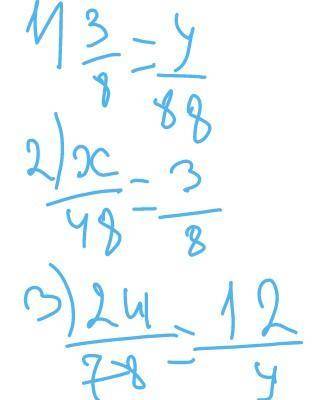 1) 3/8 = y/88
2) x/48 = 3/8
3) 24/78 = 12/y